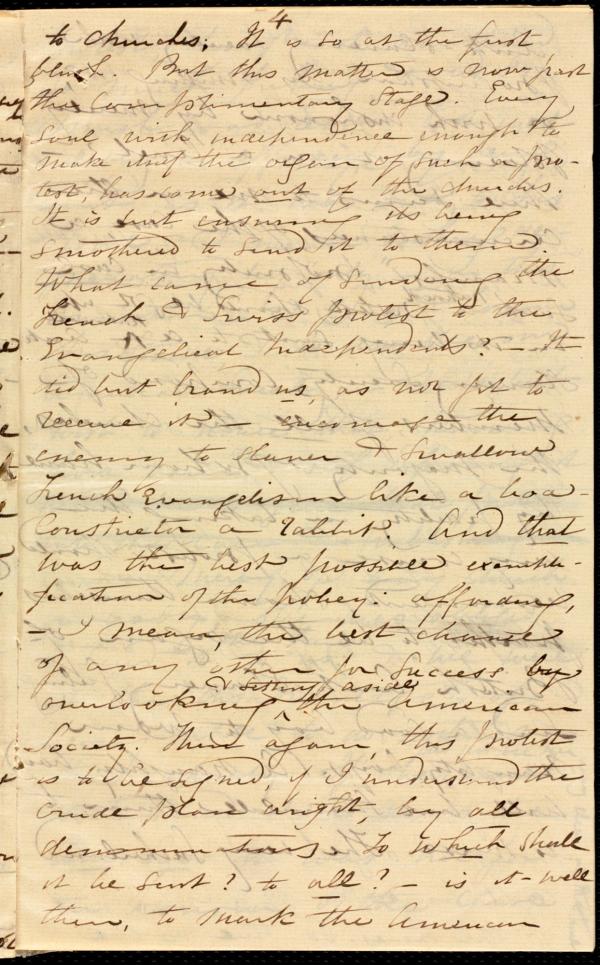 4
to churches; It is so at the first
blush. But this matter is now past
the Complimentary Stage. Every
soul with independence enough to
make itself the organ of such a pro-
test, has come out of the churches.
It is but ensuring its being
smothered to send it to them.
What came of sending the
French & Swiss protest to the
Evangelical Independents? — It
did but brand us, as not fit to
receive it — encourage the
enemy to slaver & swallow
French Evangelism like a boa-
Constrictor a rabbit. And that
was the best possible exempli-
fication of the policy: affording,
— I mean, the best chance
of any other for success by
overlooking & setting aside the American
Society. Then again, this protest
is to be signed, if I understand the
crude plan aright, by all
denominations. To which shall
it be sent? to all? — is it well
then, to mark the American